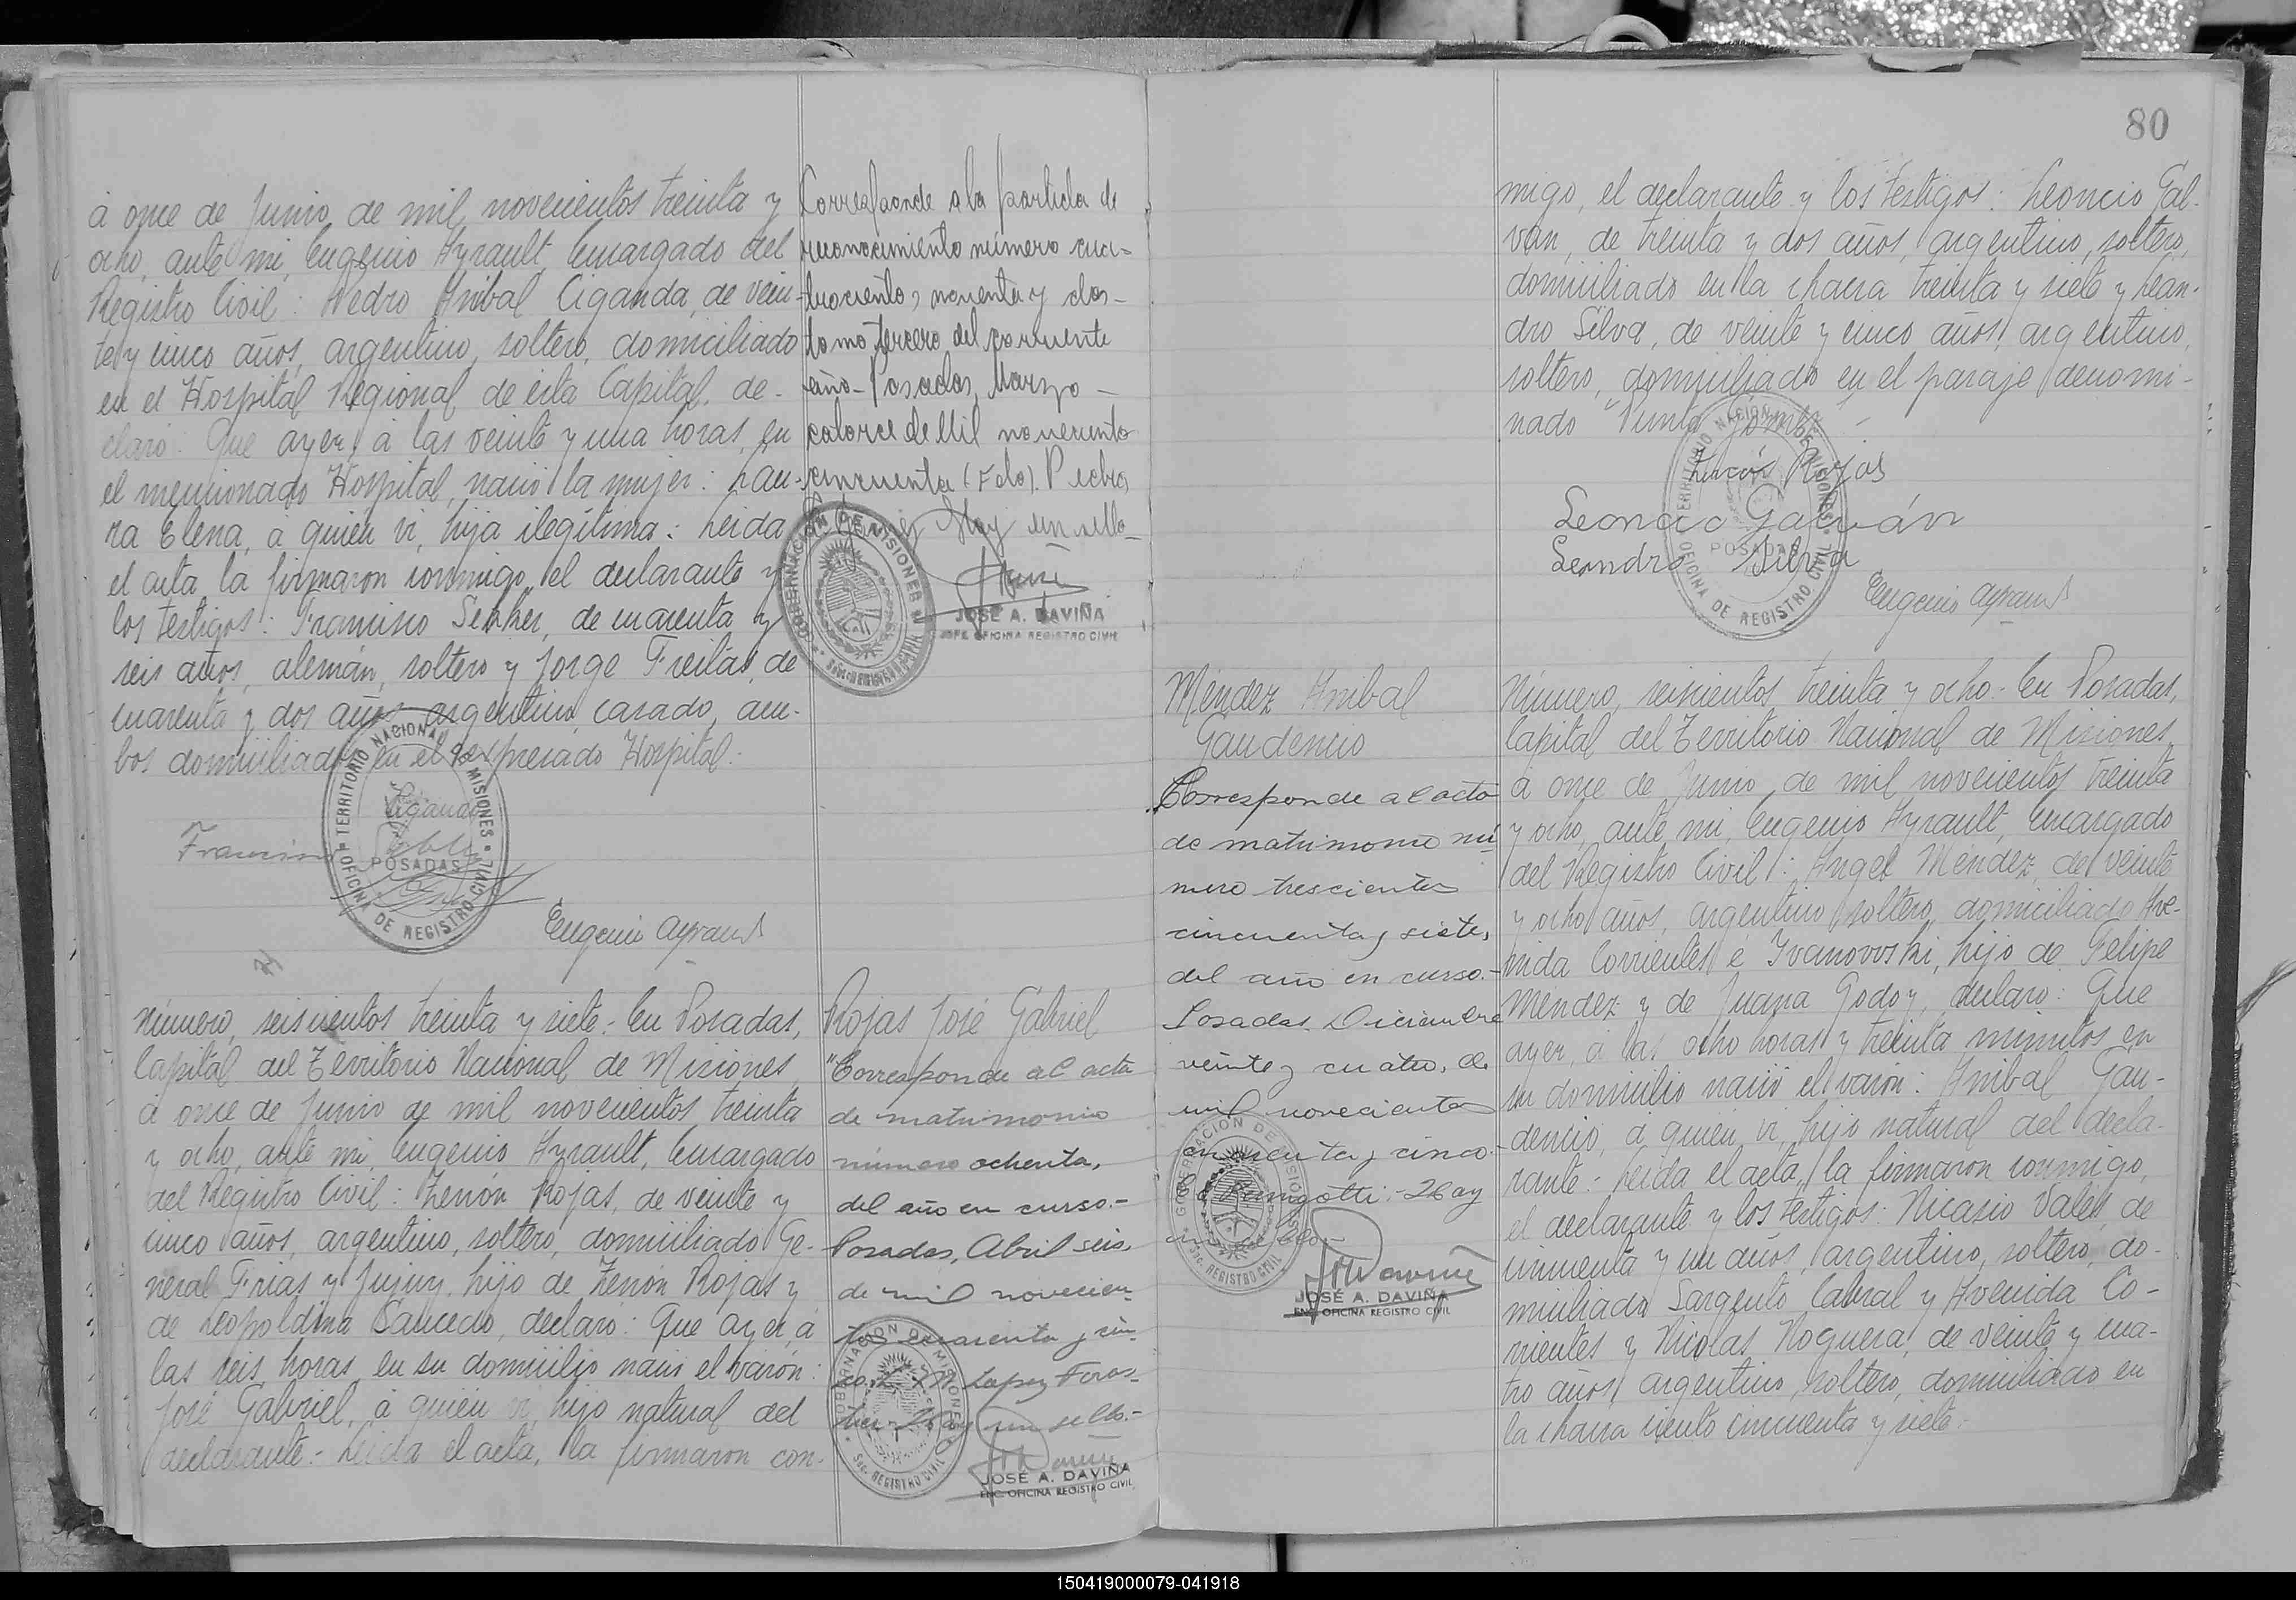 80
á once de Junio, de mil novecientos treinta y
ocho, ante mi, Eugenio Ayrault, Encargado del
Registro Civil: Pedro Anibal Ciganda, de vein-
te y cinco años, argentino, soltero, domiciliado
en el Hospital Regional de esta Capital, de-
claró: Que ayer, á las veinte y una horas, en
el mencionado Hospital, nació la mujer: Lau-
ra Elena, á quien vi, hija ilegítima: Leida
el acta, la firmaron conmigo, el declarante y
los testigos: Francisco de cuarenta y
seis años, alemán, soltero y Jorge Freitas, de
cuarenta y dos años, argentino, casado, am-
bos domiciliados en el expresado Hospital.
Ciganda
Francisco
Eugenio Ayrault
TERRITORIO NACIONAL DE MISIONES
POSADAS
OFICINA DE REGISTRO CIVIL
Corresponde a la partida de
reconocimiento número cua-
trocientos noventa y dos-
tomo tercero del corriente
año- Posadas, Marzo-
catorce de Mil novecientos
cincuenta (Fdo). Pedro
Hay un sello-
GOBERNACIÓN DE MISIONES
JOSÉ A. DAVIÑA
JEFE OFICINA REGISTRO CIVIL
Número, seiscientos treinta y siete.- En Posadas,
Capital del Territorio Nacional de Misiones,
á once de Junio de mil novecientos treinta
y ocho, ante mi, Eugenio Ayrault, Encargado
del Registro Civil: Zenón Rojas, de veinte y
cinco años, argentino, soltero, domiciliado Ge-
neral Frias y Jujuy, hijo de Zenón Rojas y
de Leopoldina Saucedo, declaró: Que ayer, á
las seis horas, en su domicilio nació el varón:
José Gabriel, á quien vi, hijo natural del
declarante.- Leida el acta, la firmaron con-
Rojas José Gabriel
"Corresponde al acta
de matrimonio
número ochenta,
del año en curso.-
Posadas, Abril seis,
de mil novecien-
tos cuarenta y cin-
co.- Lopez Foras-
Hay un sello.-
GOBERNACION DE MISIONES
SEC. REGISTRO CIVIL
JOSÉ A. DAVIÑA
ENC. OFICINA REGISTRO CIVIL
migo, el declarante y los testigos: Leoncio Gal-
ván, de treinta y dos años, argentino, soltero,
domiciliado en la chacra treinta y siete y Lean-
dro Silva, de veinte y cinco años, argentino,
soltero, domiciliado en el paraje denomi-
nado "Punta Gomez"
Rojas
Leoncio Galván
Leandro Silva
Eugenio Ayrault
TERRITORIO NACIONAL DE MISIONES
POSADAS
OFICINA DE REGISTRO CIVIL
Méndez Anibal
Gaudencio
Corresponde al acta
de matrimonio nú-
mero trescientos
cincuenta y siete,
del año en curso.-
Posadas, Diciembre
veinte y cuatro, de
mil novecientos
cincuenta y cinco.-
Hay
GOBERNACION DE MISIONES
SEC. REGISTRO CIVIL
JOSÉ A. DAVIÑA
ENC. OFICINA REGISTRO CIVIL
Número, seiscientos treinta y ocho.- En Posadas,
Capital del Territorio Nacional de Misiones,
á once de Junio, de mil novecientos treinta
y ocho, ante mi, Eugenio Ayrault, Encargado
del Registro Civil: Angel Méndez, de veinte
y ocho años, argentino, soltero, domiciliado Ave-
nida Corrientes é Ivanovoski, hijo de Felipe
Méndez y de Juana Godoy, declaró: Que
ayer, á las ocho horas y treinta minutos en
su domicilio nació el varón: Anibal Gau-
dencio, á quien vi, hijo natural del decla-
rante.- Leida el acta, la firmaron conmigo,
el declarante y los testigos: Nicasio Valés, de
cincuenta y un años, argentino, soltero, do-
miciliado Sargento Cabral y Avenida Co-
rrientes y Nicolas Noguera, de veinte y cua-
tro años, argentino, soltero, domiciliado en
la chacra ciento cincuenta y siete.
150419000079-041918